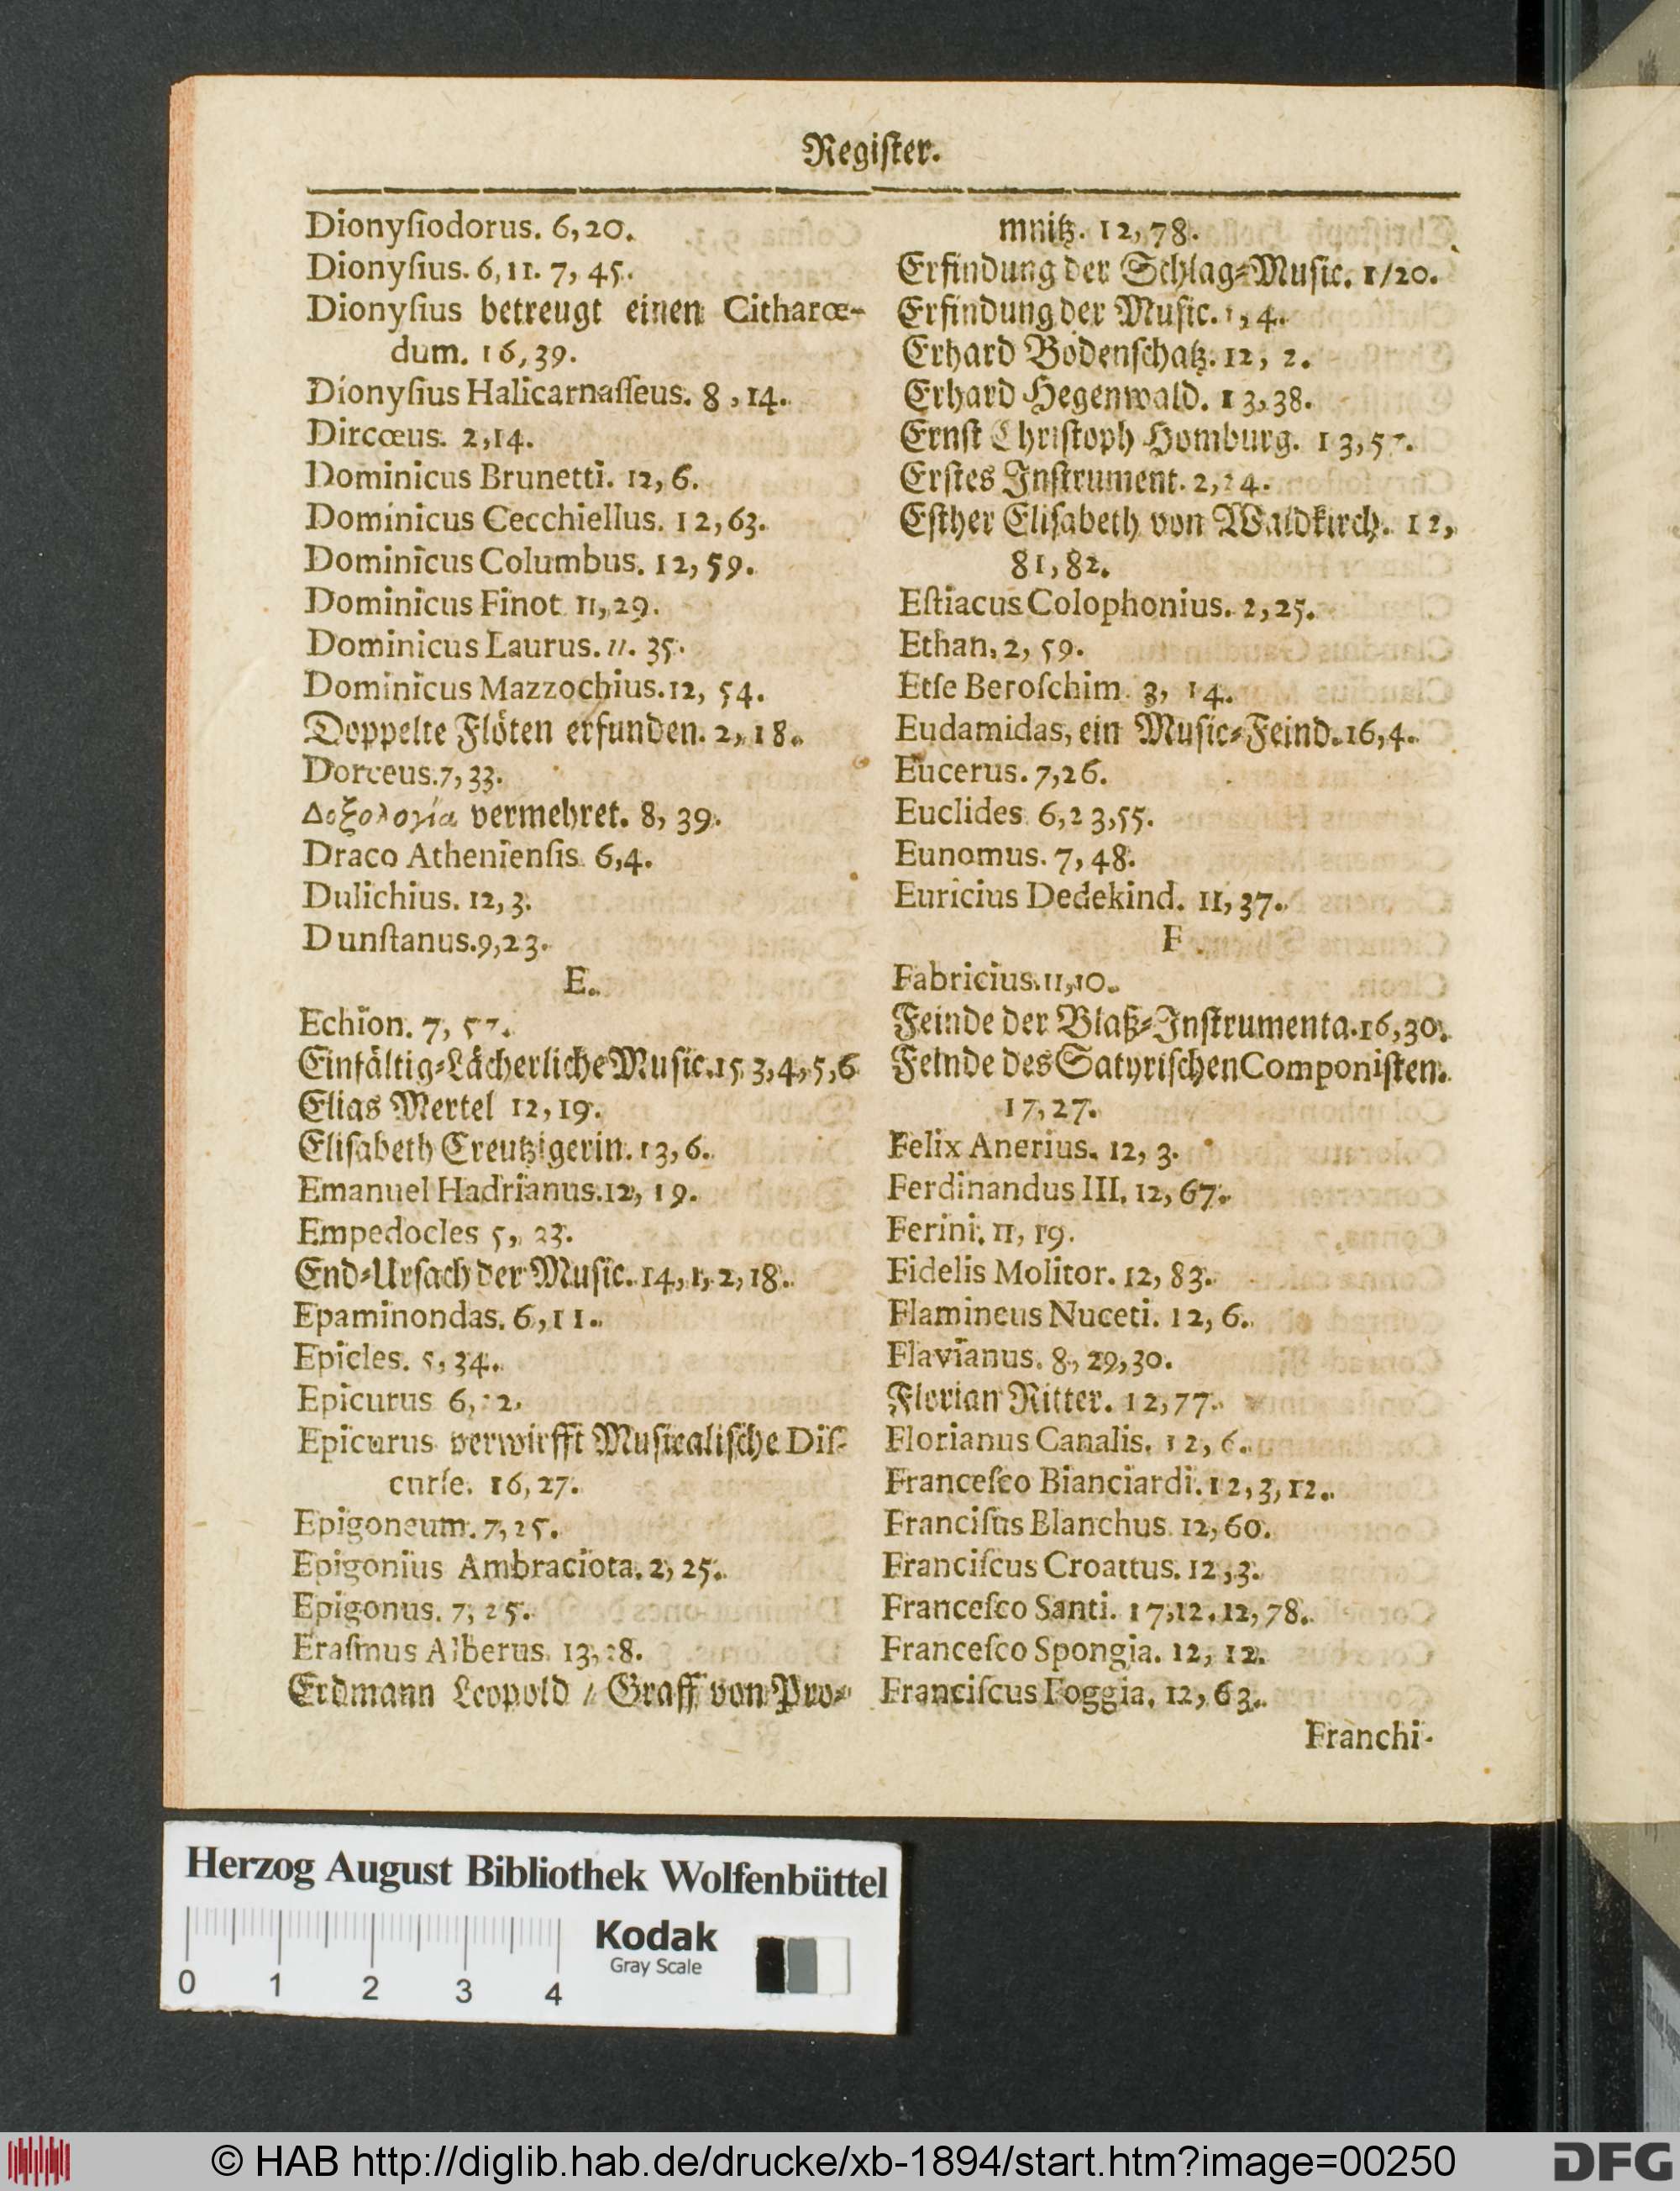 Regiſter.
Dionyſiodorus. 6, 20.
Dionyſius. 6, 11. 7, 45.
Dionyſius betreugt einen Citharœ-
dum. 16, 39.
Dionyſius Halicarnaſſeus. 8, 14.
Dircœus. 2, 14.
Dominicus Brunetti. 12, 6.
Dominicus Cecchiellus. 12, 63.
Dominicus Columbus. 12, 59.
Dominicus Finot 11, 29.
Dominicus Laurus. 11. 35.
Dominicus Mazzochius. 12, 54.
Doppelte Flöten erfunden. 2, 18.
Dorceus. 7, 33.
Δοξολογία vermehret. 8, 39.
Draco Athenienſis 6, 4.
Dulichius. 12, 3.
Dunſtanus. 9, 23.
E.
Echion. 7, 57.
Einfältig-Lächerliche Muſic. 15 3, 4, 5, 6
Elias Mertel 12, 19.
Eliſabeth Creutzigerin. 13, 6.
Emanuel Hadrianus. 12, 19.
Empedocles 5, 23.
End-Urſach der Muſic. 14, 1, 2, 18.
Epaminondas. 6, 11.
Epicles. 5, 34.
Epicurus 6,
Epicurus verwirfft Muſicaliſche Diſ-
curſe. 16, 27.
Epigoneum. 7, 25.
Epigonius Ambraciota. 2, 25.
Epigonus. 7, 25.
Eraſmus Alberus. 13,
Erdmann Leopold / Graff von Pro-
mnitz. 12, 78.
Erfindung der Schlag-Muſic. 1/20.
Erfindung der Muſic. 1, 4.
Erhard Bodenſchatz. 12, 2.
Erhard Hegenwald. 13, 38.
Ernſt Chriſtoph Homburg. 13, 57.
Erſtes Inſtrument. 2, 14.
Eſther Eliſabeth von Waldkirch. 12,
81, 82.
Eſtiacus Colophonius. 2, 25.
Ethan. 2, 59.
Etſe Beroſchim 3, 14.
Eudamidas, ein Muſic-Feind. 16, 4.
Eucerus. 7, 26.
Euclides 6, 23, 55.
Eunomus. 7, 48.
Euricius Dedekind. 11, 37.
F.
Fabricius. 11, 10.
Feinde der Blaß-Inſtrumenta. 16, 30.
Feinde des Satyriſchen Componiſten.
17, 27.
Felix Anerius. 12, 3.
Ferdinandus III. 12, 67.
Ferini. 11, 19.
Fidelis Molitor. 12, 83.
Flamineus Nuceti. 12, 6.
Flavianus. 8, 29, 30.
Florian Ritter. 12, 77.
Florianus Canalis. 12, 6.
Franceſco Bianciardi. 12, 3, 12.
Franciſus Blanchus 12, 60.
Franciſcus Croattus. 12, 3.
Franceſco Santi. 17, 12. 12, 78.
Franceſco Spongia. 12, 12.
Franciſcus Foggia. 12, 63.
Franchi-
Herzog August Bibliothek Wolfenbüttel
Kodak
Gray Scale
0 1 2 3 4
© HAB http://diglib.hab.de/drucke/xb-1894/start.htm?image=00250
DFG